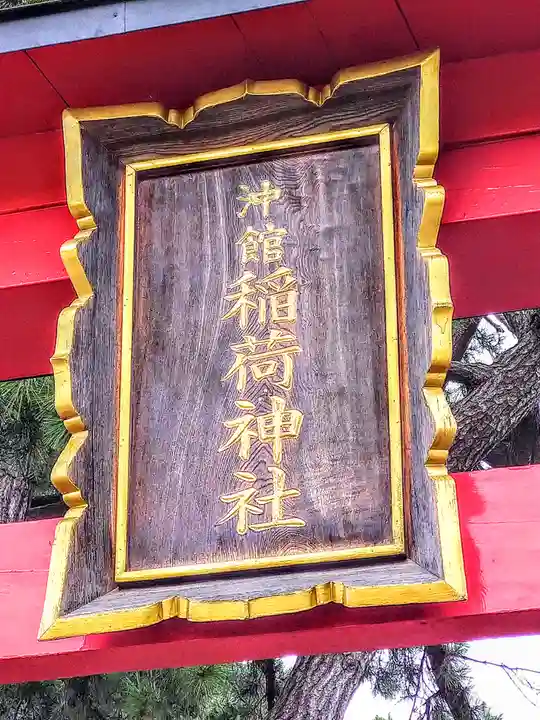 沖館稲荷神社